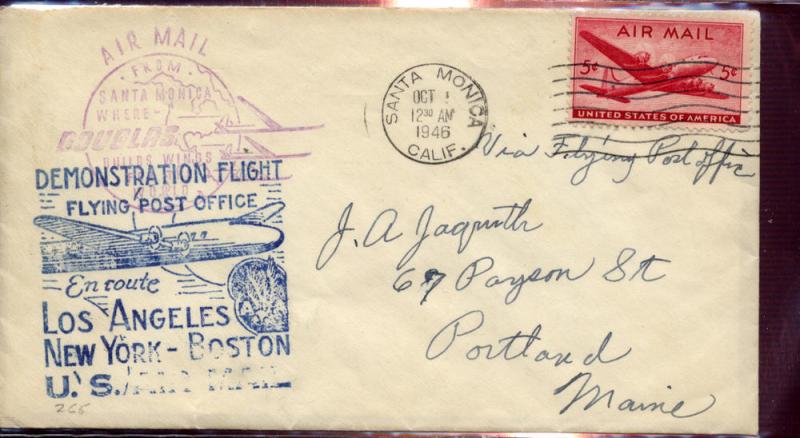 AIR MAIL
FROM
SANTA MONICA
WHERE
DOUGLAS
BUILDS WINDS
WORLD
SANTA MONICA
OCT 1
12 30 AM
1946
CALIF.
AIR MAIL
5¢ 5¢
UNITED STATES OF AMERICA
Via Flying Post Office
DEMONSTRATION FLIGHT
FLYING POST OFFICE
En route
LOS ANGELES
NEW YORK - BOSTON
U.S. AIR MAIL
J. A Jaquith
67 Payson St
Portland
Maine
265